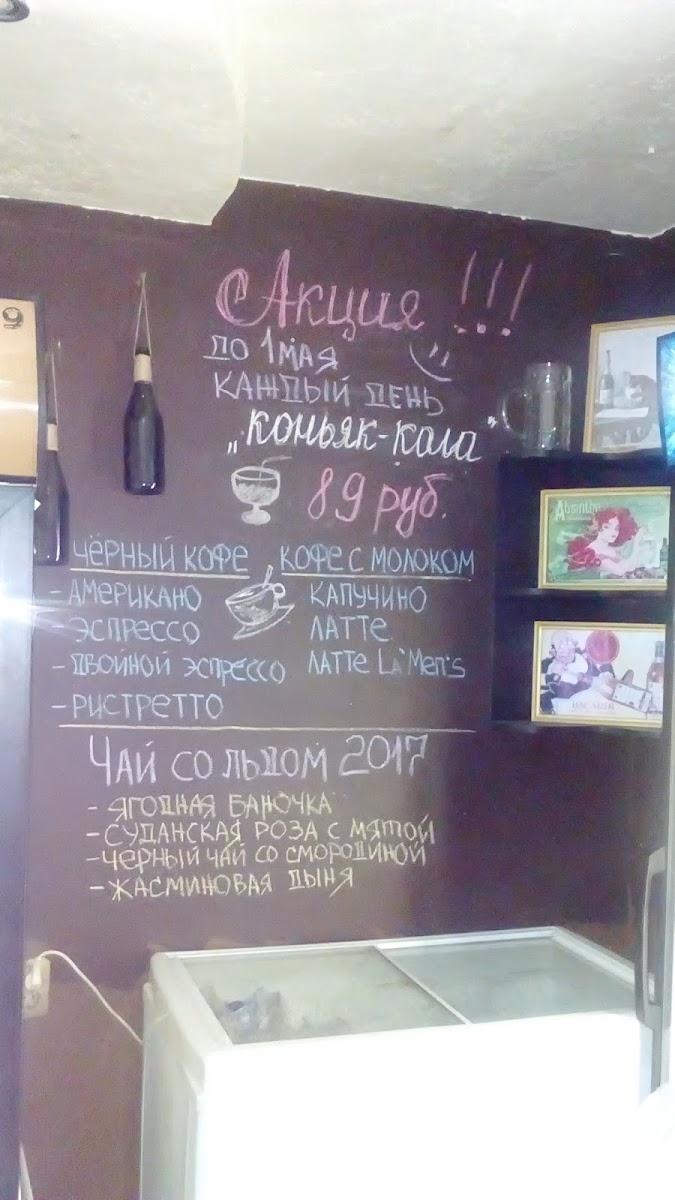 Акция !!!
до 1 мая
каждый день
„коньяк-кола"
89 руб.
ЧЁРНЫЙ КОФЕ
- АМЕРИКАНО
- ЭСПРЕССО
- ДВОЙНОЙ ЭСПРЕССО
- РИСТРЕТТО
КОФЕ С МОЛОКОМ
КАПУЧИНО
ЛАТТЕ
ЛАТТЕ La'Men's
ЧАЙ СО ЛЬДОМ 2017
- ЯГОДНАЯ БАНОЧКА
- СУДАНСКАЯ РОЗА С МЯТОЙ
- ЧЕРНЫЙ ЧАЙ СО СМОРОДИНОЙ
- ЖАСМИНОВАЯ ДЫНЯ
Absinthe